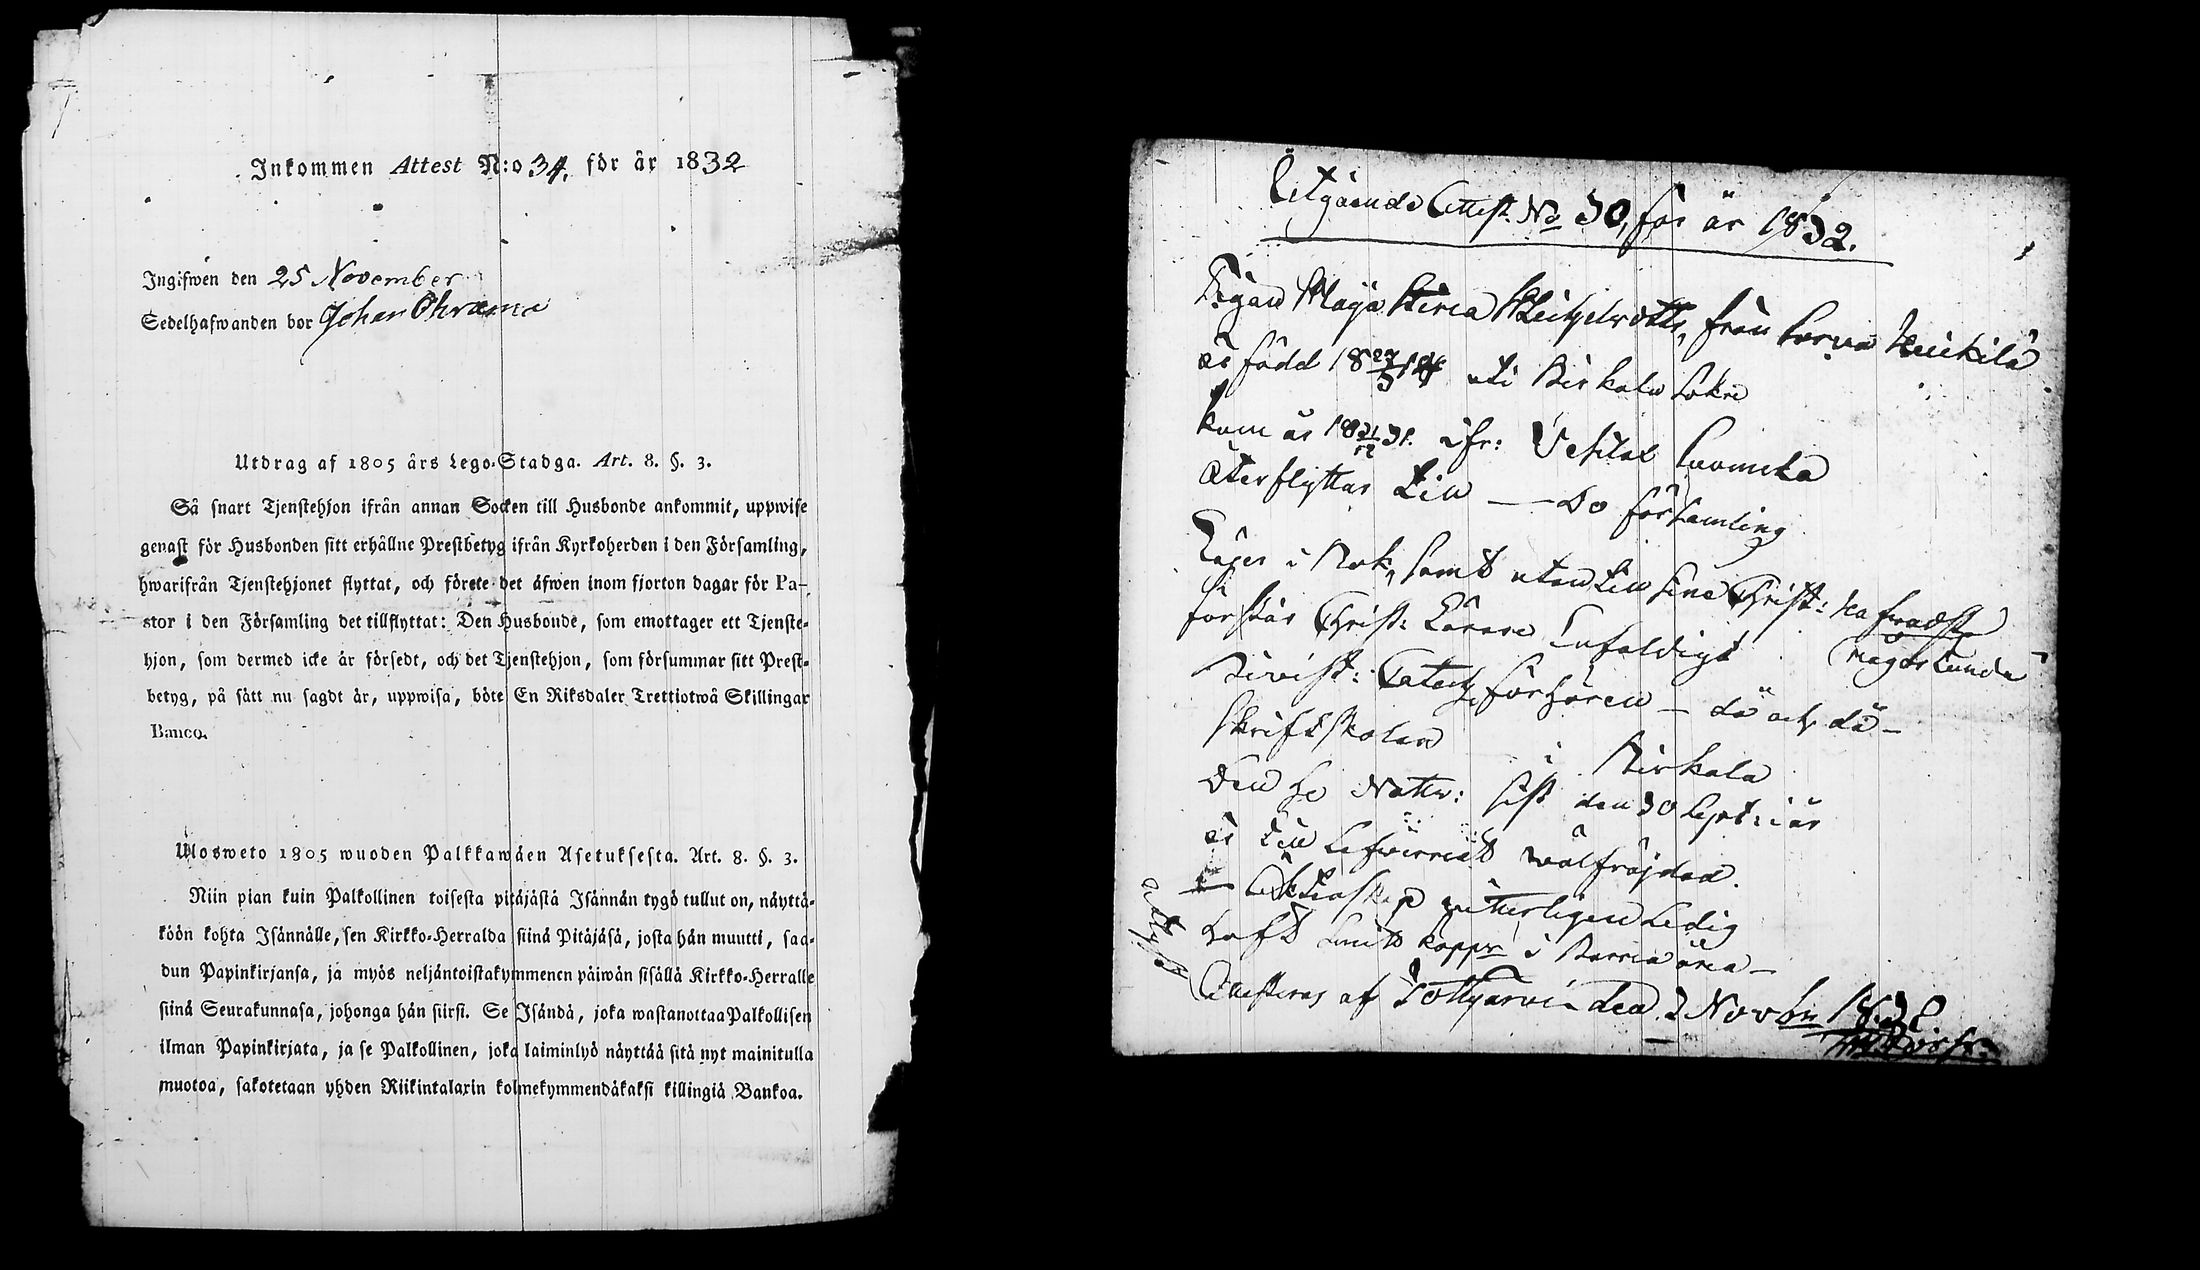 Inkommen Attest N:o 34. för år 1832
Ingifwen den 25 November
Sedelhafwanden bor Johan Ohrama
Utdrag af 1805 års Lego-Stadga. Art. 8. §. 3.
Så snart Tjenstehjon ifrån annan Socken till Husbonde ankommit, uppwise
genast för Husbonden sitt erhållne Prestbetyg ifrån Kyrkoherden i den Församling,
hwarifrån Tjenstehjonet flyttat, och förete det äfwen inom fjorton dagar för Pa-
stor i den Församling det tillflyttat: Den Husbonde, som emottager ett Tjenste-
hjon, som dermed icke är försedt, och det Tjenstehjon, som försummar sitt Prest-
betyg, på sätt nu sagdt är, uppwisa, böte En Riksdaler Trettiotwå Skillingar
Banco.
Ulosweto 1805 wuoden Palkkawäen Asetuksesta. Art. 8. §. 3.
Niin pian kuin Palkollinen toisesta pitäjästä Isännän tygö tullut on, näyttä-
köön kohta Isännälle, sen Kirkko-Herralda siinä Pitäjäsä, josta hän muutti, saa-
dun Papinkirjansa, ja myös neljäntoistakymmenen päiwän sisällä Kirkko-Herralle
siinä Seurakunnasa, johonga hän siirsi. Se Isändä, joka wastanottaa Palkollisen
ilman Papinkirjata, ja se Palkollinen, joka laiminlyö näyttää sitä nyt mainitulla
muotoa, sakotetaan yhden Riikintalarin kolmekymmendäkaksi killingiä Bankoa.
Utgående Attest No 30, för år 1832.
Pigan Maja Stina från Heickilä
är född 18 27/3 14 uti Birkala Sokn
kom år 18 21/12 31. ifr:
återflyttar till — Do församling
Läger i bok, samt utan till sina Christ:
förstår Christ: Lärare Enfaldigt någorlunda
Bivist: Catech förhören — då och då —
Skriftskolan i Birkala
den He Nattv: sist den 30 Sept: i år
är till Lefwernet wälfräjdad.
Äktenskap witterligen Ledig
haft koppor i Barnaåren —
Attesteras af Tottijärvi den 3 Novbr 1832